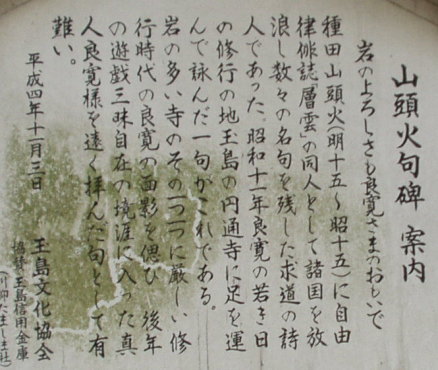 山頭火句碑 案内
岩のよろしさも良寛さまのおもいで
種田山頭火(明十五～昭十五)に自由
律俳誌層雲"の同人として諸国を放
浪し数々の名句を残した求道の詩
人であった、昭和十一年良寛の若き日
の修行の地玉島の円通寺に足を運
んで詠んだ一句がこれである。
岩の多い寺のその一つ一つに厳しい修
行時代の良寛の面影を偲び 後年
の遊戯三昧自在の境涯に入った真
人良寛様を遠く拝んだ句として有
難い。
平成四年十一月三日
玉島文化協会
協賛 玉島信用金庫